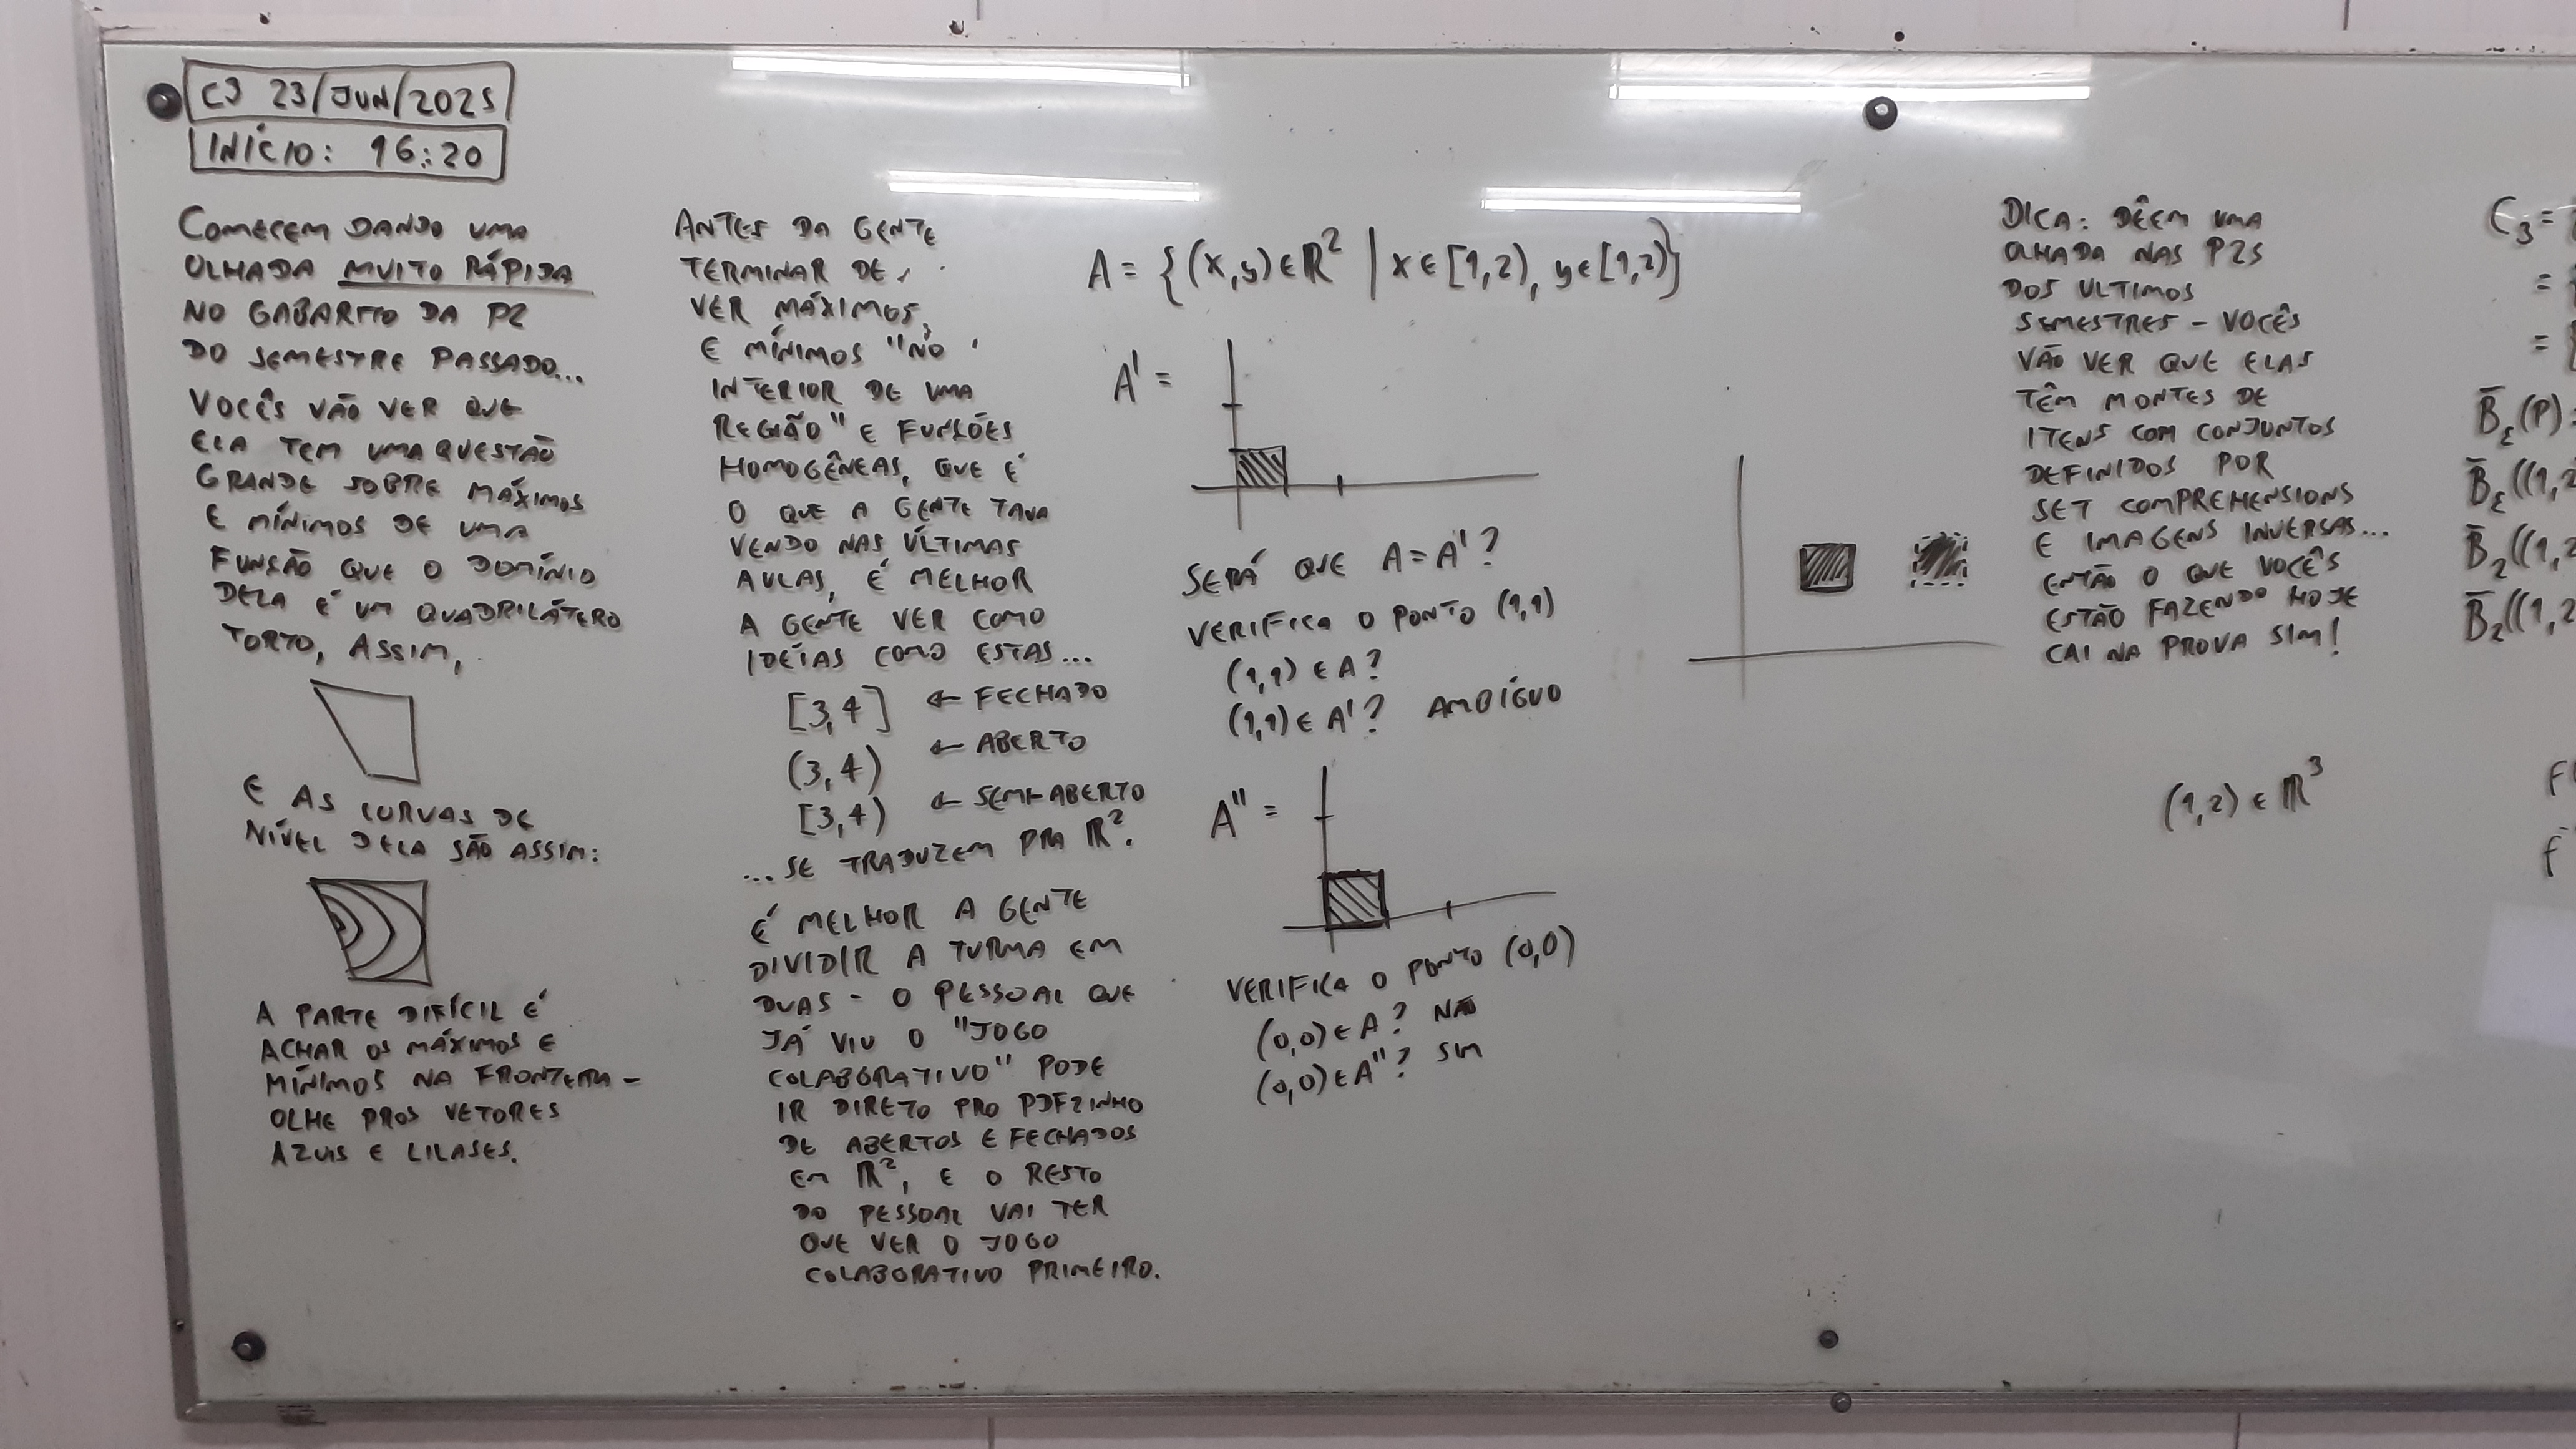 C3 23/JUN/2025
INÍCIO: 16:20
COMECEM DANDO UMA
OLHADA MUITO RÁPIDA
NO GABARITO DA P2
DO SEMESTRE PASSADO...
VOCÊS VÃO VER QUE
ELA TEM UMA QUESTÃO
GRANDE SOBRE MÁXIMOS
E MÍNIMOS DE UMA
FUNÇÃO QUE O DOMÍNIO
DELA É UM QUADRILÁTERO
TORTO, ASSIM,
E AS CURVAS DE
NÍVEL DELA SÃO ASSIM:
A PARTE DIFÍCIL É
ACHAR OS MÁXIMOS E
MÍNIMOS NA FRONTEIRA –
OLHE PROS VETORES
AZUIS E LILASES.
ANTES DA GENTE
TERMINAR DE
VER MÁXIMOS
E MÍNIMOS "NO
INTERIOR DE UMA
REGIÃO" E FUNÇÕES
HOMOGÊNEAS, QUE É
O QUE A GENTE TAVA
VENDO NAS ÚLTIMAS
AULAS, É MELHOR
A GENTE VER COMO
IDÉIAS COMO ESTAS...
[3,4] ← FECHADO
(3,4) ← ABERTO
[3,4) ← SEMI-ABERTO
...SE TRADUZEM PRA ℝ².
É MELHOR A GENTE
DIVIDIR A TURMA EM
DUAS - O PESSOAL QUE
JÁ VIU O "JOGO
COLABORATIVO" PODE
IR DIRETO PRO PDFZINHO
DE ABERTOS E FECHADOS
EM ℝ², E O RESTO
DO PESSOAL VAI TER
QUE VER O JOGO
COLABORATIVO PRIMEIRO.
A = {(x,y)∈ℝ² | x∈[1,2), y∈[1,2)}
A' =
SERÁ QUE A=A'?
VERIFICA O PONTO (1,1)
(1,1)∈A?
(1,1)∈A'? AMBÍGUO
A'' =
VERIFICA O PONTO (0,0)
(0,0)∈A? NÃO
(0,0)∈A''? SIM
DICA: DÊEM UMA
OLHADA NAS P2S
DOS ULTIMOS
SEMESTRES – VOCÊS
VÃO VER QUE ELAS
TÊM MONTES DE
ITENS COM CONJUNTOS
DEFINIDOS POR
SET COMPREHENSIONS
E IMAGENS INVERSAS...
ENTÃO O QUE VOCÊS
ESTÃO FAZENDO HOJE
CAI NA PROVA SIM!
(1,2)∈ℝ³
C₃ =
=
=
B̄ε(P)
B̄ε((1,2
B̄₂((1,2
B̄₂((1,2